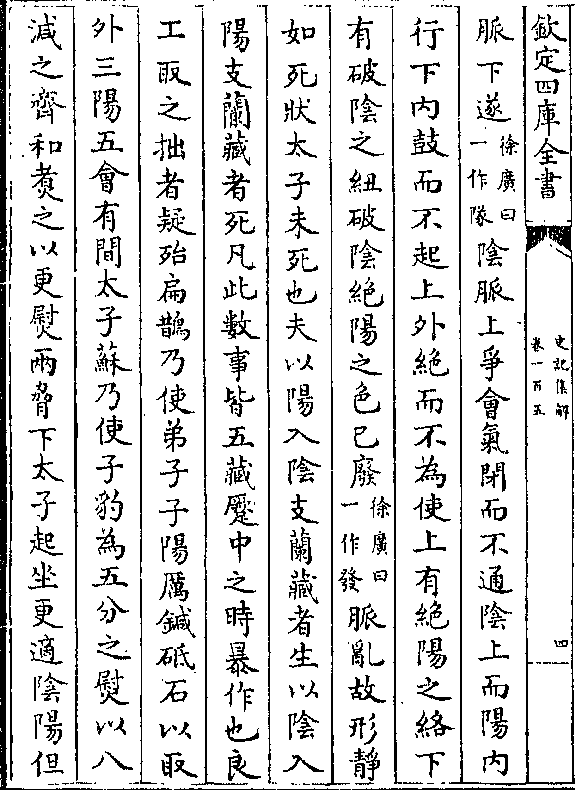 欽定四庫全書
史記集解
卷一百五
四
脈下遂徐廣曰一作隊陰脈上爭會氣閉而不通陰上而陽内
行下内鼓而不起上外絶而不為使上有絶陽之絡下
有破陰之紐破陰絶陽之色已廢徐廣曰一作發脈亂故形靜
如死狀太子未死也夫以陽入陰支蘭藏者生以陰入
陽支蘭藏者死凡此數事皆五藏蹙中之時暴作也良
工取之拙者疑殆扁鵲乃使弟子子陽厲鍼砥石以取
外三陽五會有間太子蘇乃使子豹為五分之熨以八
減之齊和煑之以更熨兩脅下太子起坐更適陰陽但